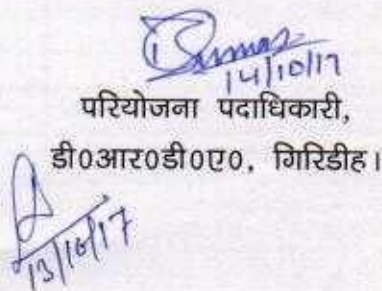 14/10/17
परियोजना पदाधिकारी,
डी०आर०डी०ए०, गिरिडीह।
13/10/17